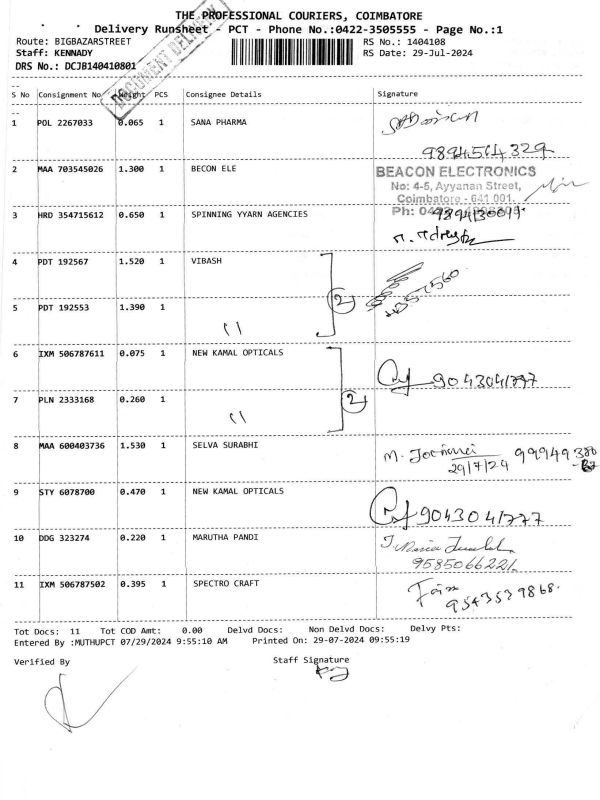 THE PROFESSIONAL COURIERS, COIMBATORE
Delivery Runsheet - PCT - Phone No.:0422-3505555 - Page No.:1
Route: BIGBAZARSTREET RS No.: 1404108
Staff: KENNADY RS Date: 29-Jul-2024
DRS No.: DCJB140410801
DOCUMENT DELIVERY
S No Consignment No Weight PCS Consignee Details Signature
1 POL 2267033 0.065 1 SANA PHARMA
9894564329
2 MAA 703545026 1.300 1 BECON ELE
BEACON ELECTRONICS
No: 4-5, Ayyanan Street,
Coimbatore - 641 001.
3 HRD 354715612 0.650 1 SPINNING YYARN AGENCIES
Ph:
4 PDT 192567 1.520 1 VIBASH
2
5 PDT 192553 1.390 1
11
6 IXM 506787611 0.075 1 NEW KAMAL OPTICALS
9043041777
7 PLN 2333168 0.260 1
2
11
8 MAA 600403736 1.530 1 SELVA SURABHI
M.
29/7/24
9 STY 6078700 0.470 1 NEW KAMAL OPTICALS
9043041777
10 DDG 323274 0.220 1 MARUTHA PANDI
9585066221
11 IXM 506787502 0.395 1 SPECTRO CRAFT
9543539868.
Tot Docs: 11 Tot COD Amt: 0.00 Delvd Docs: Non Delvd Docs: Delvy Pts:
Entered By :MUTHUPCT 07/29/2024 9:55:10 AM Printed On: 29-07-2024 09:55:19
Verified By Staff Signature